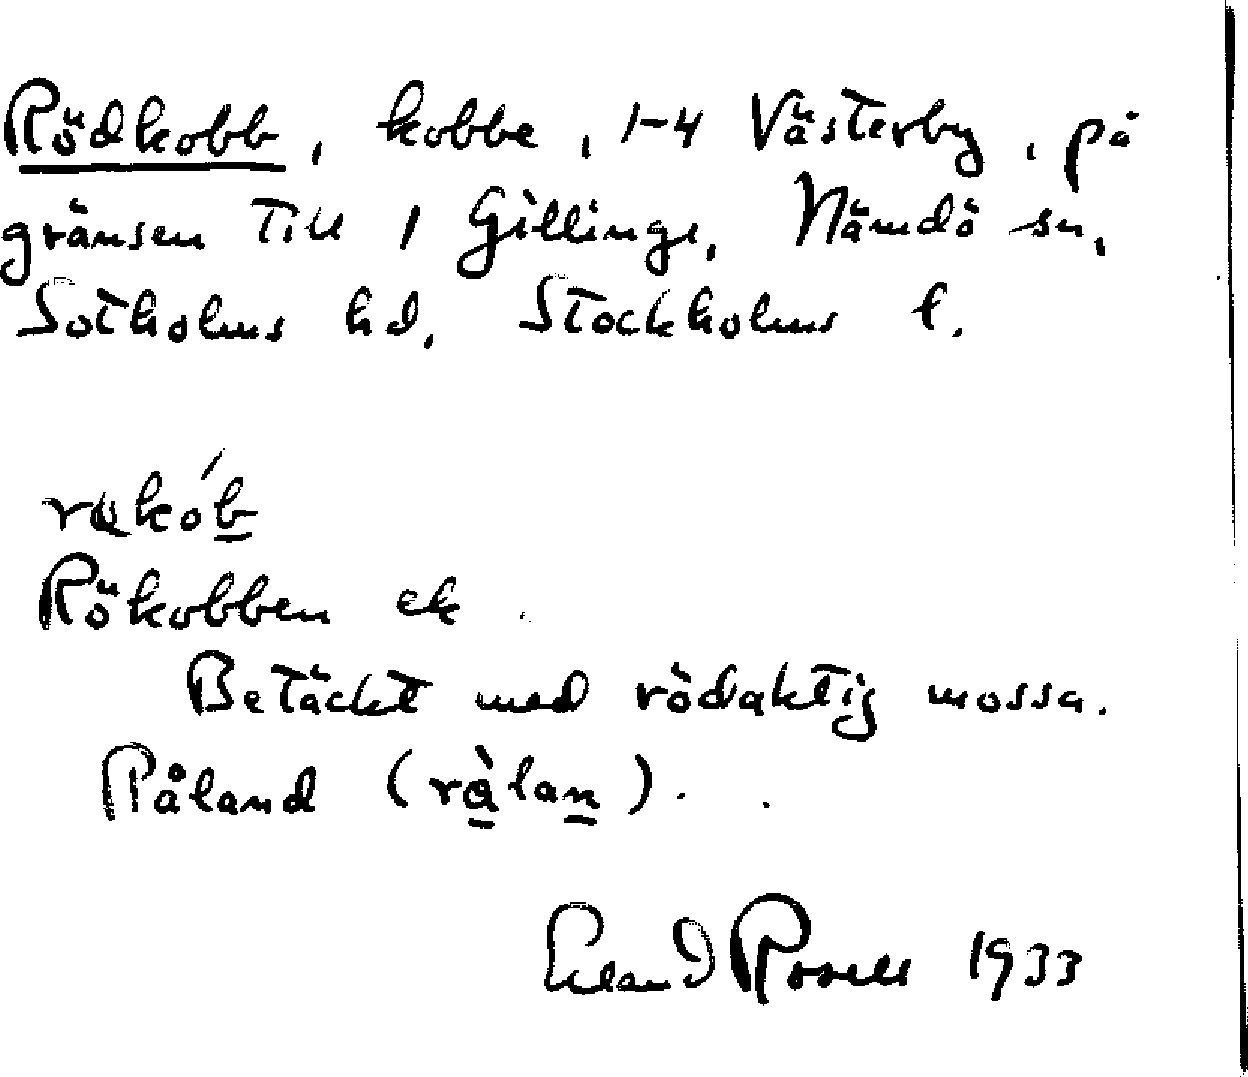 Rödkobb, kobbe, 1-4 Västerby, på
gränsen till 1 Gillinge, Nämdö sn,
Sotholms hd, Stockholms l.
Rökobben ek
Betäckt med rödaktig mossa.
Råland (rålan).
Erland Rosell 1933